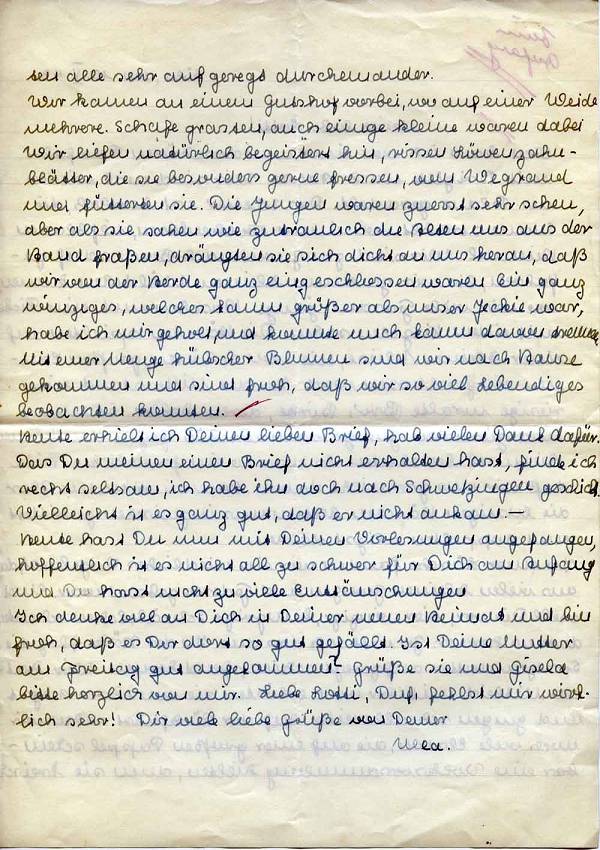 ten alle sehr aufgeregt durcheinander.
Wir kamen an einem Gutshof vorbei, wo auf einer Weide
mehrere Schafe grasten, auch einige kleine waren dabei
Wir liefen natürlich begeistert hin, rissen Löwenzahn-
blätter, die sie besonders gerne fressen, vom Wegrand
und fütterten sie. Die Jungen waren zuerst sehr scheu,
aber als sie sahen wie zutraulich die Alten uns aus der
Hand fraßen, drängten sie sich dicht an uns heran, daß
wir von der Herde ganz eingeschlossen waren Ein ganz
winziges, welches kaum größer als unser Jeckie war,
habe ich mir geholt und konnte mich kaum davon trennen
Mit einer Menge hübscher Blumen sind wir nach Hause
gekommen und sind froh, daß wir so viel Lebendiges
beobachten konnten.
Heute erhielt ich Deinen lieben Brief, hab vielen Dank dafür.
Das Du meinen einen Brief nicht erhalten hast, finde ich
recht seltsam, ich habe ihn doch nach Schwetzingen geschickt.
Vielleicht ist es ganz gut, daß er nicht ankam. —
Heute hast Du nun mit Deinen Vorlesungen angefangen,
hoffentlich ist es nicht all zu schwer für Dich am Anfang
und Du hast nicht zu viele Enttäuschungen
Ich denke viel an Dich in Deiner neuen Heimat und bin
froh, daß es Dir dort so gut gefällt. Ist Deine Mutter
am Freitag gut angekommen? Grüße sie und Gisela
bitte herzlich von mir. Liebe Lotti, Du fehlst mir wirk-
lich sehr! Dir viele liebe Grüße von Deiner